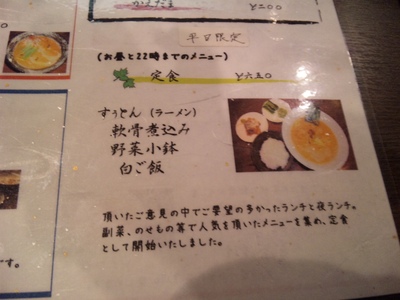 かえだま ￥二〇〇
平日限定
(お昼と22時までのメニュー)
定食 ￥六五〇
すうどん (ラーメン)
軟骨煮込み
野菜小鉢
白ご飯
頂いたご意見の中でご要望の多かったランチと夜ランチ。
副菜、のせもの等で人気を頂いたメニューを集め、定食
として開始いたしました。
です。